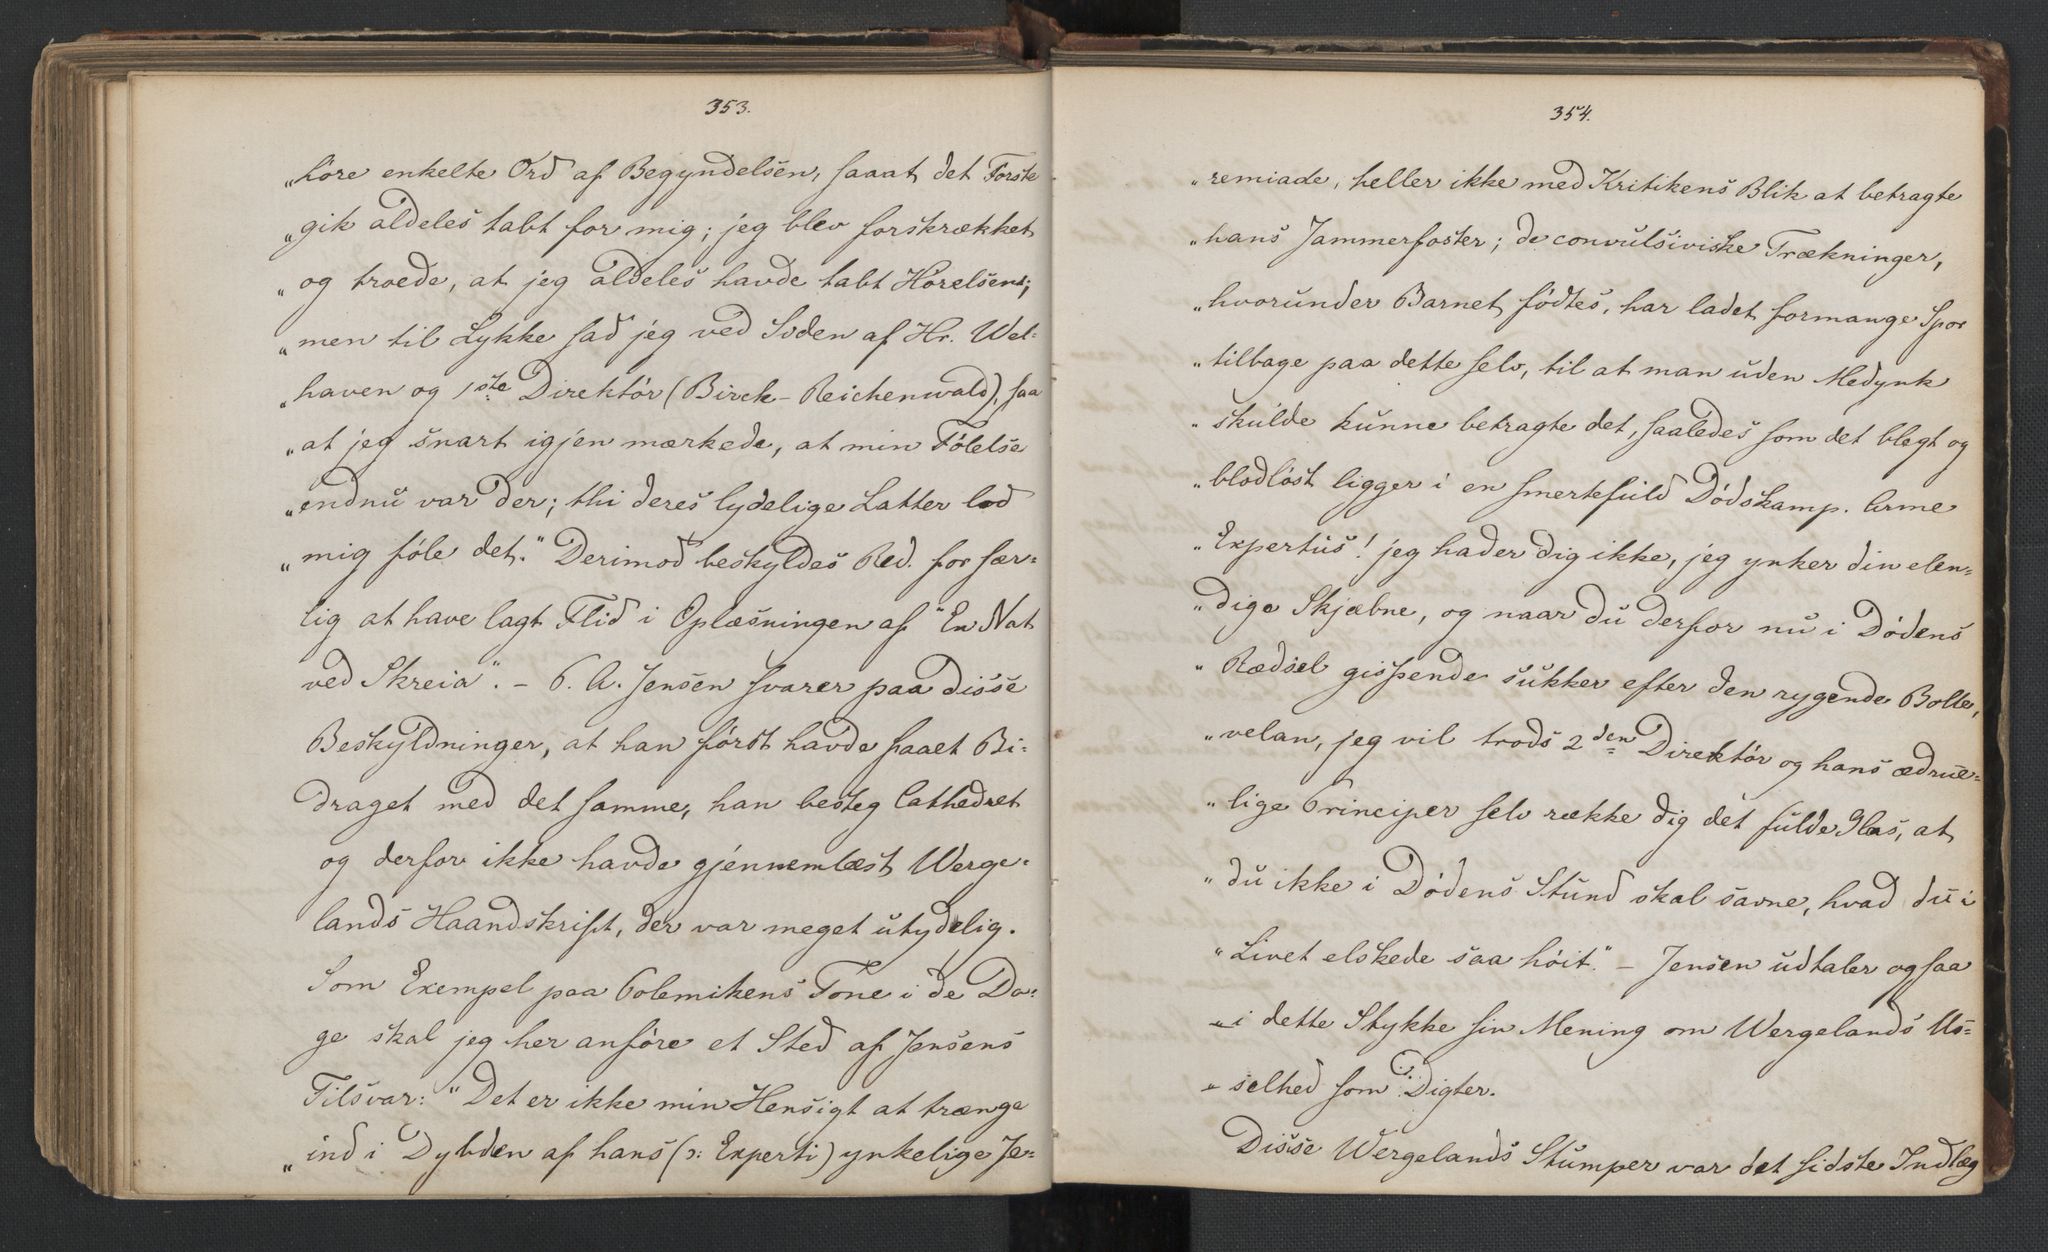 353.
„höre enkelte Ord af Begyndelsen, saaat det Förste
„gik aldeles tabt for mig; jeg blev forskrækket
„og troede, at jeg aldeles havde tabt Hörelsen;
„men til Lykke sad jeg ved Siden af Hr. Wel-
„haven og 1ste Direktör (Birck-Reichenwald), saa
„at jeg snart igjen mærkede, at min Fölelse
„endnu var der; thi deres lydelige Latter lod
„mig föle det." Derimod beskyldes Red. for sær-
lig at have lagt Flid i Oplæsningen af "En Nat
ved Skreia". – P. A. Jensen svarer paa disse
Beskyldninger, at han först havde faaet Bi-
draget med det samme, han besteg Cathedret
og derfor ikke havde gjennemlæst Werge-
lands Haandskrift, der var meget utydelig.
Som Exempel paa Polemikens Tone i de Da-
ge skal jeg her anföre et Sted af Jensens
Tilsvar: "Det er ikke min Hensigt at trænge
„ind i Dybden af hans (ɔ: Experti) ynkelige Je-
354.
„remiade, heller ikke med Kritikens Blik at betragte
„hans Jammerfoster; de convulsiviske Trækninger,
„hvorunder Barnet födtes, har ladet formange Spor
„tilbage paa dette selv, til at man uden Medynk
„skulde kunne betragte det, saaledes som det blegt og
„blodlöst ligger i en smertefuld Dödskamp. Arme
„Expertus! jeg hader dig ikke, jeg ynker din elen-
„dige Skjæbne, og naar du derfor nu i Dödens
„Rædsel gispende sukker efter den rygende Bolle,
„velan, jeg vil trods 2den Direktör og hans ædrue-
„lige Principer selv række dig det fulde Glas, at
„du ikke i Dödens Stund skal savne, hvad du i
„Livet elskede saa höit." – Jensen udtaler ogsaa
„i dette Stykke sin Mening om Wergelands Us-
„selhed som Digter.
Disse Wergelands Stumper var det sidste Indlæg